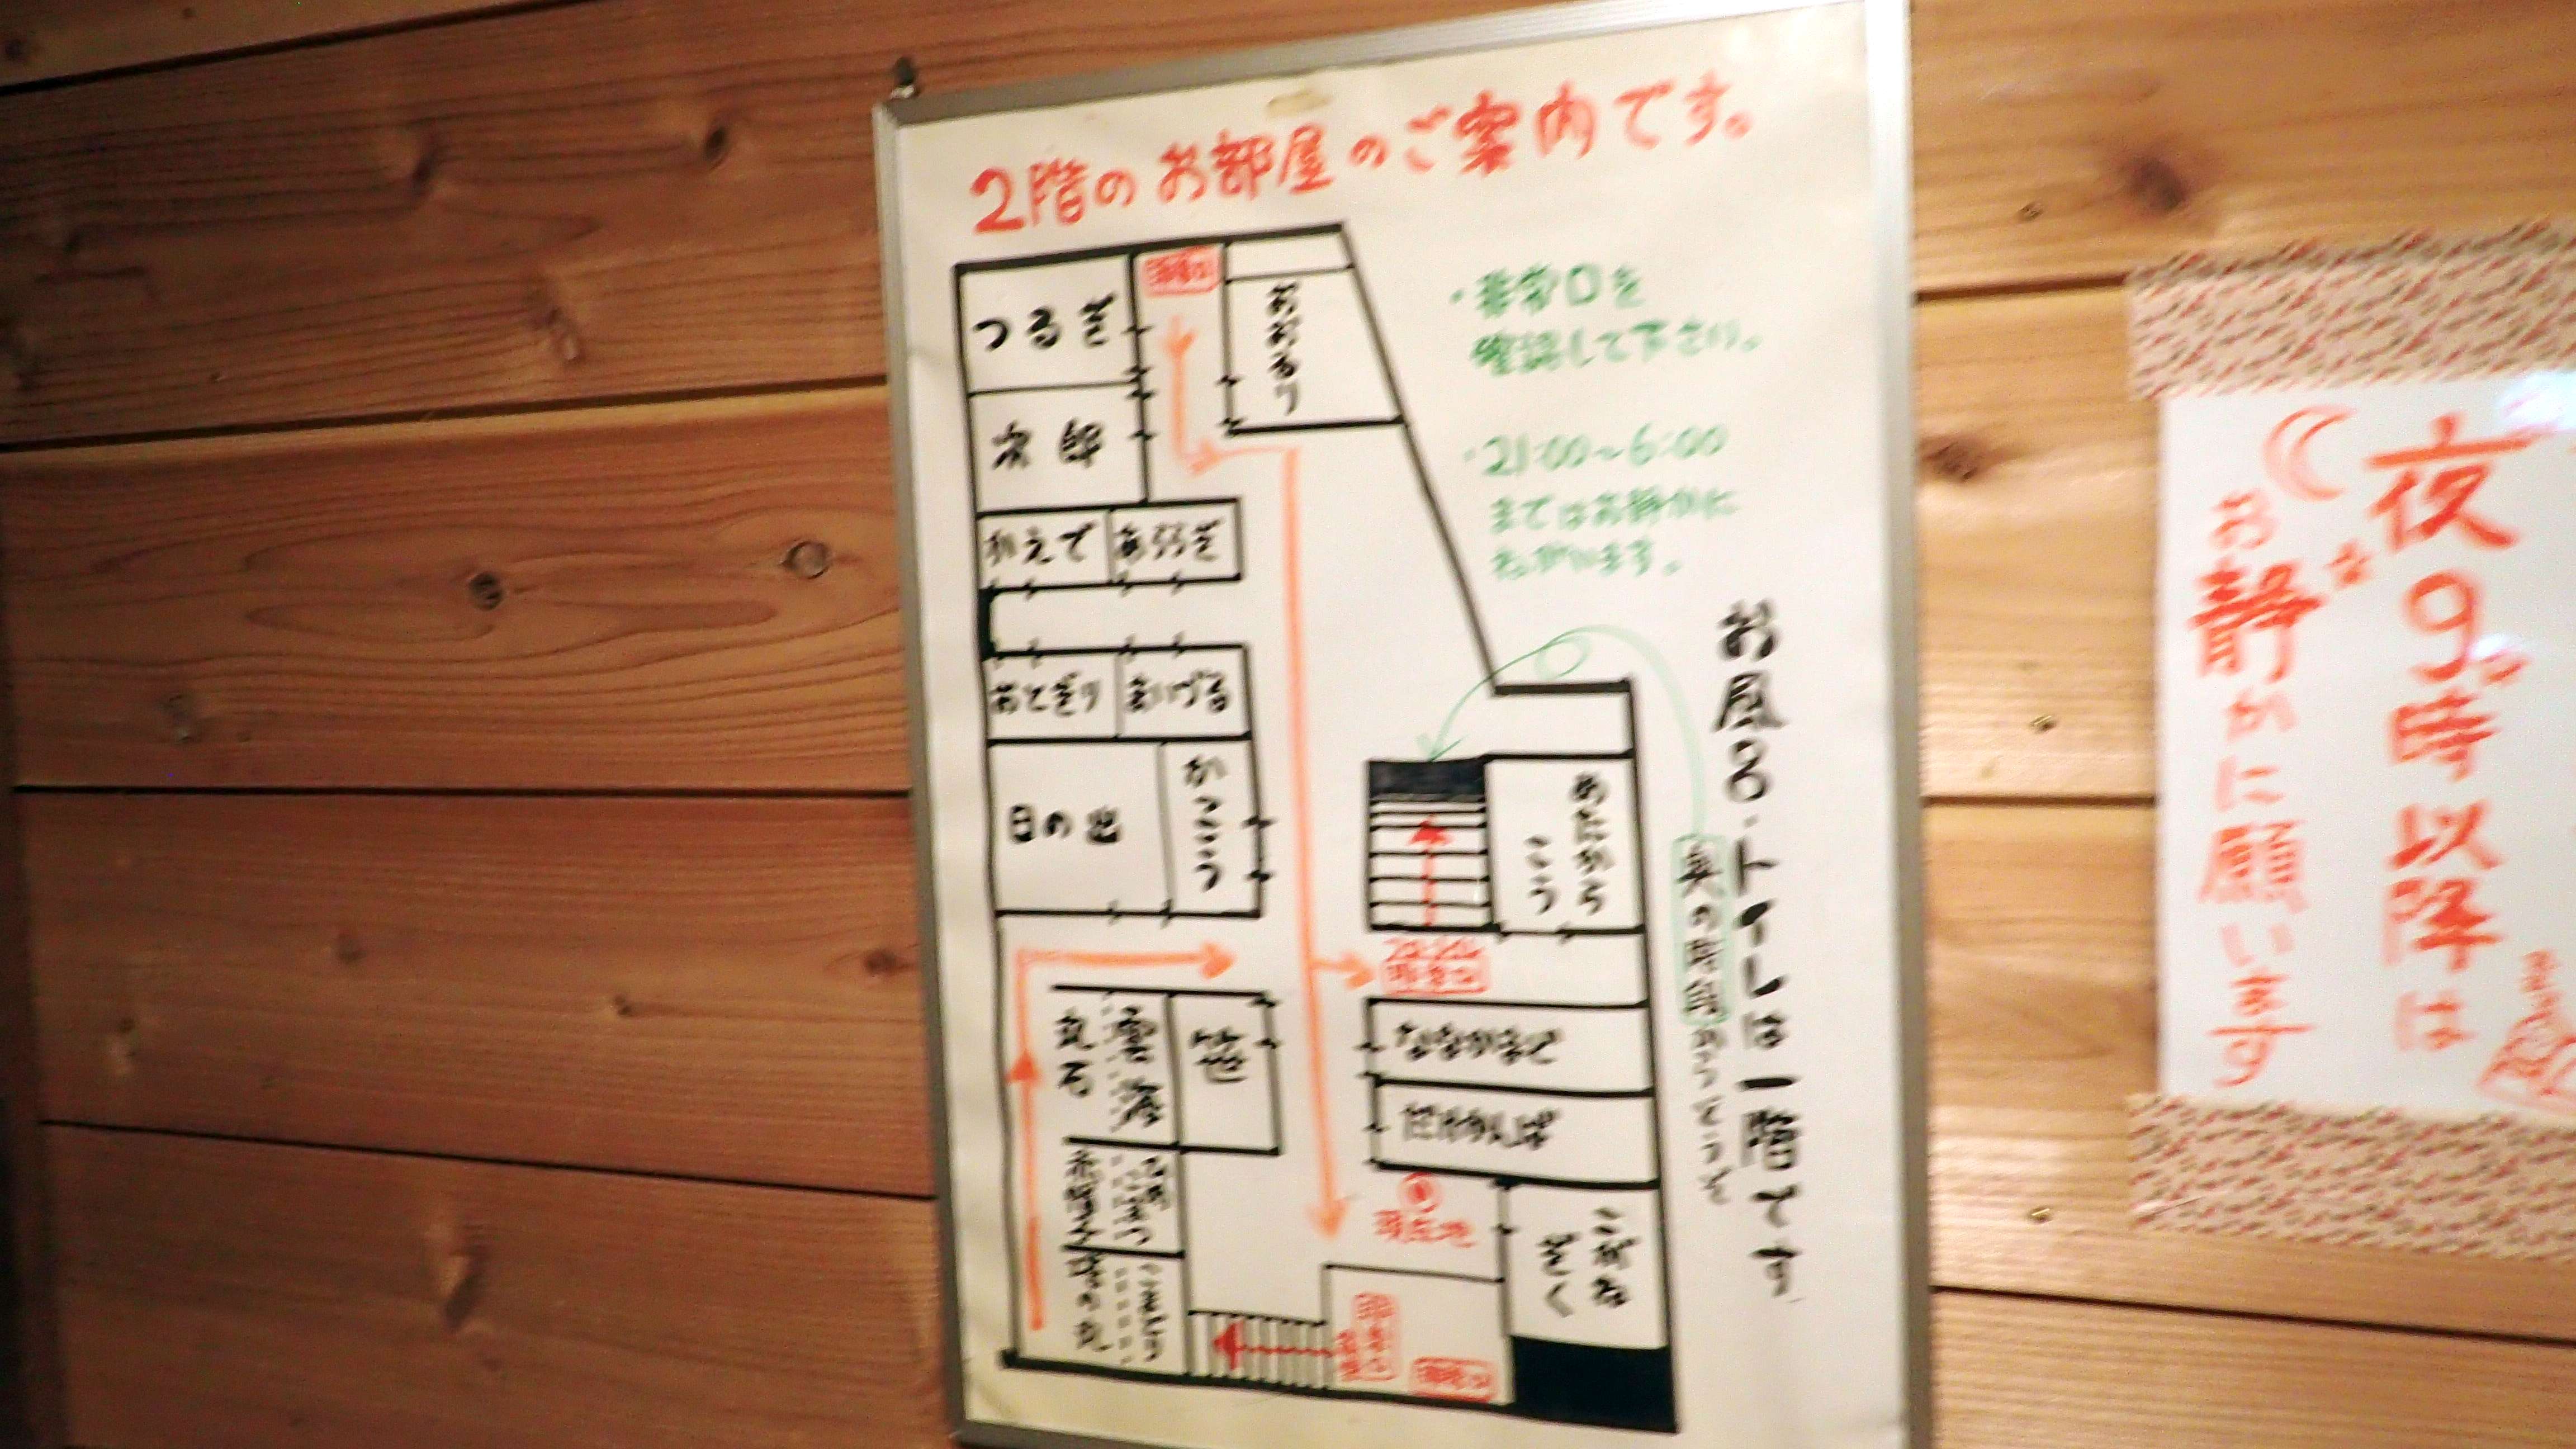 2階のお部屋のご案内です。
・非常口を
確認して下さい。
・21:00~6:00
まではお静かに
ねがいます。
つるぎ
おおるり
次郎
かえで
あららぎ
おとぎり
まいづる
日の出
かっこう
めたから
こう
非常口
丸石
雲海
笹
ななかまど
だけかんば
現在地
こがね
ぎく
お風呂・トイレは一階です
奥の階段からどうぞ
夜9時以降は
お静かに願います